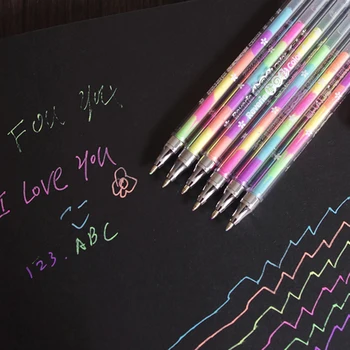 For You
I Love You
123.ABC